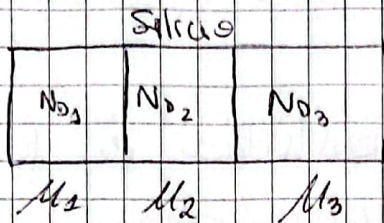 Silicio
N_D1 N_D2 N_D3
μ1 μ2 μ3